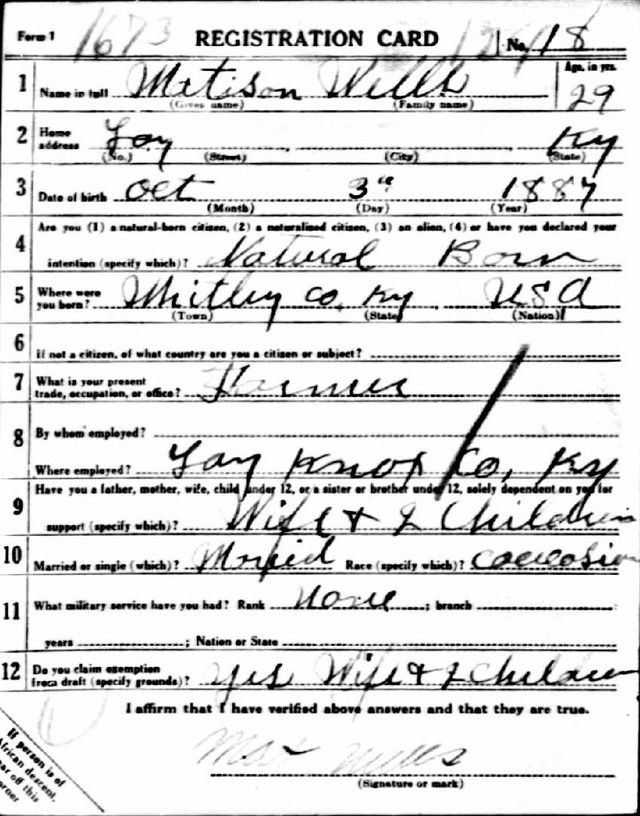 Form 1 1673 REGISTRATION CARD No. 18
1 Name in full Matison Wells Age, in yrs. 29
(Given name) (Family name)
2 Home address Gay Ky
(No.) (Street) (City) (State)
3 Date of birth Oct 3rd 1887
(Month) (Day) (Year)
4 Are you (1) a natural-born citizen, (2) a naturalized citizen, (3) an alien, (4) or have you declared your
intention (specify which)? Natural Born
5 Where were you born? Whitley Co, Ky USA
(Town) (State) (Nation)
6 If not a citizen, of what country are you a citizen or subject?
7 What is your present trade, occupation, or office? Farmer
8 By whom employed?
Where employed? Gay Knox Co, Ky
9 Have you a father, mother, wife, child under 12, or a sister or brother under 12, solely dependent on you for
support (specify which)? Wife & 2 Children
10 Married or single (which)? Married Race (specify which)? Caucasian
11 What military service have you had? Rank None ; branch
years ; Nation or State
12 Do you claim exemption from draft (specify grounds)? Yes Wife & 2 Children
I affirm that I have verified above answers and that they are true.
Mat Wells
(Signature or mark)
If person is of
African descent,
tear off this
corner